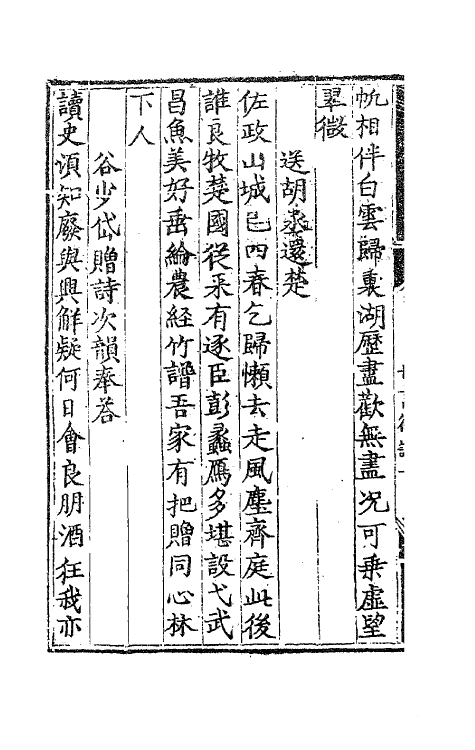 帆相伴白雲歸裏湖歷盡歡無盡況可乗虛望
翠微
送胡丞還楚
佐政山城已四春乞歸懶去走風塵齊庭此後
誰良牧楚國從來有逐臣彭蠡鴈多堪設弋武
昌魚美好垂綸農經竹譜吾家有把贈同心林
下人
谷少岱贈詩次韻奉荅
讀史須知廢與興解疑何日會良朋酒狂我亦